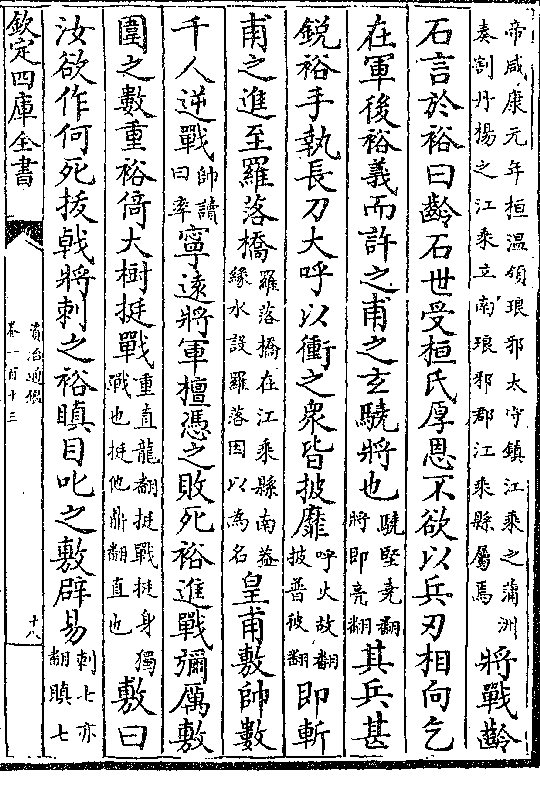 帝咸康元年桓温領琅邪太守鎮江乗之蒲洲
奏割丹揚之江乗立南琅邪郡江乗縣屬焉
將戰齡
石言於裕曰齡石世受桓氏厚恩不欲以兵刃相向乞
在軍後裕義而許之甫之玄驍將也
驍堅堯翻
將即亮翻
其兵甚
銳裕手執長刀大呼以衝之衆皆披靡
呼火故翻
披普彼翻
即斬
甫之進至羅落橋
羅落橋在江乗縣南葢
緣水設羅落因以為名
皇甫敷帥數
千人逆戰
帥讀
曰率
寧遠將軍檀憑之敗死裕進戰彌厲敷
圍之數重裕倚大樹挺戰
重直龍翻挺戰挺身獨
戰也挺他鼎翻直也
敷曰
汝欲作何死拔戟將刺之裕瞋目叱之敷辟易
刺七亦
翻瞋七
欽定四庫全書
資治通鑑
卷一百十三
十八